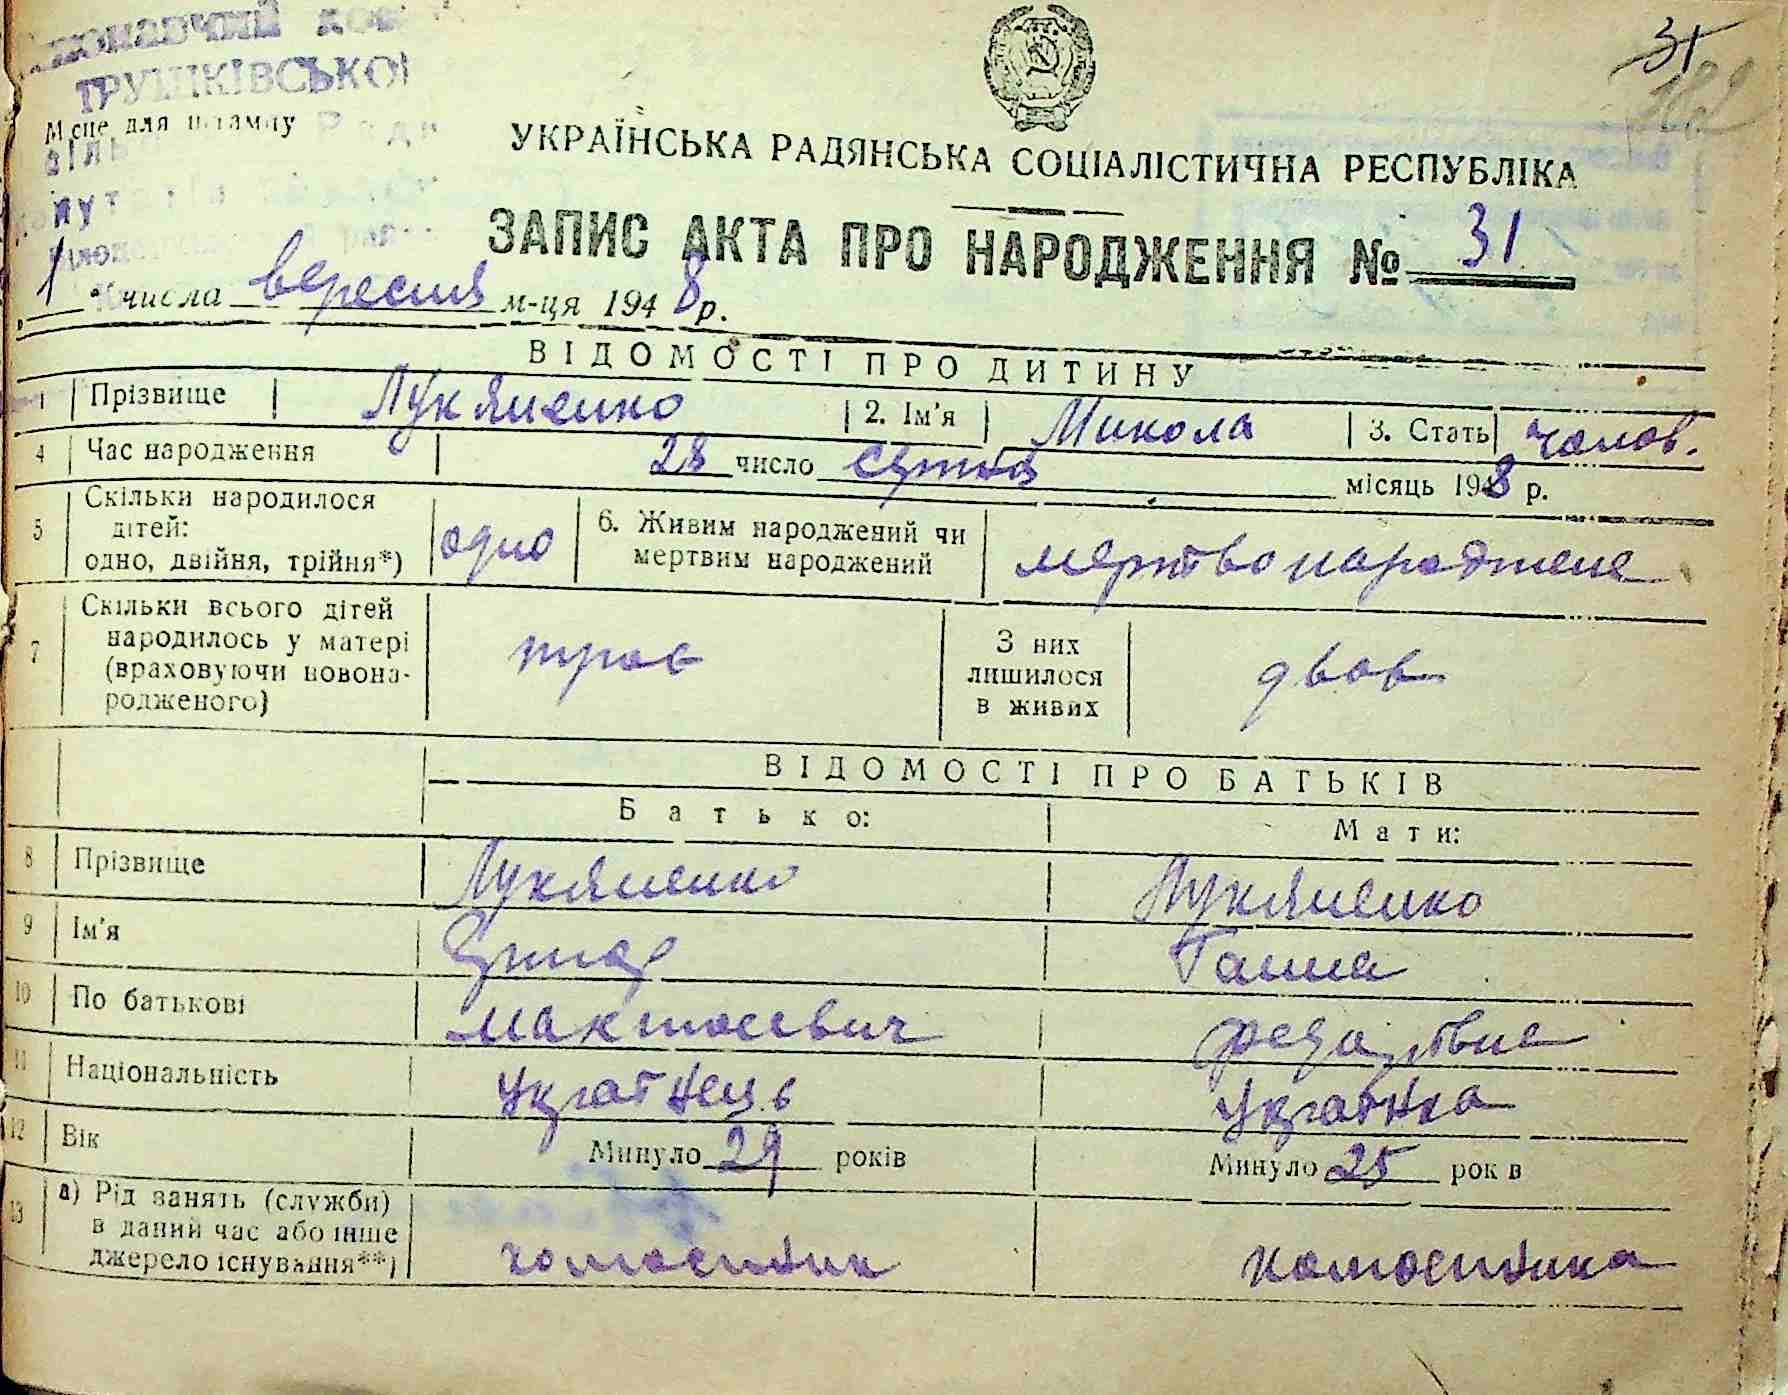 ТРУШКІВСЬКОЇ
Місце для штампу
УКРАЇНСЬКА РАДЯНСЬКА СОЦІАЛІСТИЧНА РЕСПУБЛІКА
ЗАПИС АКТА ПРО НАРОДЖЕННЯ № 31
1 числа вересня м-ця 1948 р.
ВІДОМОСТІ ПРО ДИТИНУ
1 Прізвище Лукяненко 2. Ім'я Микола 3. Стать чолов.
4 Час народження 28 число серпня місяць 1948 р.
5 Скільки народилося дітей: одно, двійня, трійня*) одно 6. Живим народжений чи мертвим народжений мертвонароджене
7 Скільки всього дітей народилось у матері (враховуючи новонародженого) троє З них лишилося в живих двоє
ВІДОМОСТІ ПРО БАТЬКІВ
Батько: Мати:
8 Прізвище Лукяненко Лукяненко
9 Ім'я Ганна
10 По батькові
11 Національність Українець Українка
12 Вік Минуло 29 років Минуло 25 років
13 а) Рід занять (служби) в даний час або інше джерело існування**) колгоспник колгоспника